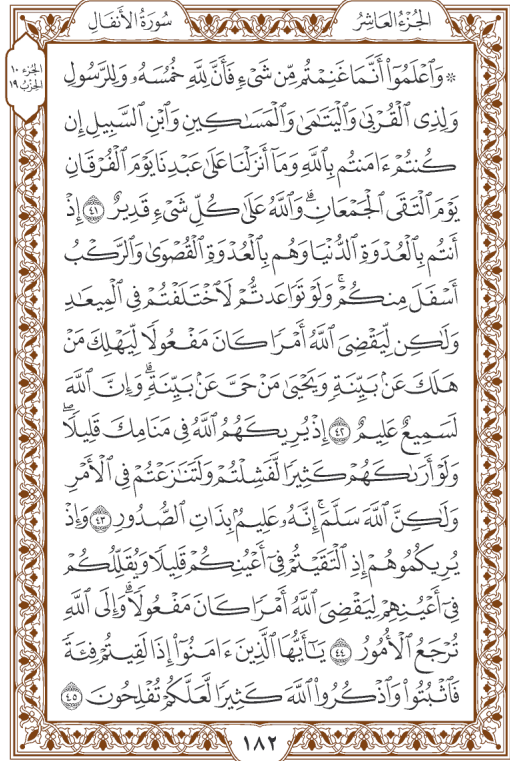 الجُزْءُ العَاشِرُ
سُورَةُ الأَنفَالِ
الجزء ١٠
الحزب ١٩
۞ وَٱعۡلَمُوٓاْ أَنَّمَا غَنِمۡتُم مِّن شَيۡءٖ فَأَنَّ لِلَّهِ خُمُسَهُۥ وَلِلرَّسُولِ
وَلِذِي ٱلۡقُرۡبَىٰ وَٱلۡيَتَٰمَىٰ وَٱلۡمَسَٰكِينِ وَٱبۡنِ ٱلسَّبِيلِ إِن
كُنتُمۡ ءَامَنتُم بِٱللَّهِ وَمَآ أَنزَلۡنَا عَلَىٰ عَبۡدِنَا يَوۡمَ ٱلۡفُرۡقَانِ
يَوۡمَ ٱلۡتَقَى ٱلۡجَمۡعَانِۗ وَٱللَّهُ عَلَىٰ كُلِّ شَيۡءٖ قَدِيرٌ ٤١ إِذۡ
أَنتُم بِٱلۡعُدۡوَةِ ٱلدُّنۡيَا وَهُم بِٱلۡعُدۡوَةِ ٱلۡقُصۡوَىٰ وَٱلرَّكۡبُ
أَسۡفَلَ مِنكُمۡۚ وَلَوۡ تَوَاعَدتُّمۡ لَٱخۡتَلَفۡتُمۡ فِي ٱلۡمِيعَٰدِ
وَلَٰكِن لِّيَقۡضِيَ ٱللَّهُ أَمۡرٗا كَانَ مَفۡعُولٗا لِّيَهۡلِكَ مَنۡ
هَلَكَ عَنۢ بَيِّنَةٖ وَيَحۡيَىٰ مَنۡ حَيَّ عَنۢ بَيِّنَةٖۗ وَإِنَّ ٱللَّهَ
لَسَمِيعٌ عَلِيمٌ ٤٢ إِذۡ يُرِيكَهُمُ ٱللَّهُ فِي مَنَامِكَ قَلِيلٗاۖ
وَلَوۡ أَرَىٰكَهُمۡ كَثِيرٗا لَّفَشِلۡتُمۡ وَلَتَنَٰزَعۡتُمۡ فِي ٱلۡأَمۡرِ
وَلَٰكِنَّ ٱللَّهَ سَلَّمَۚ إِنَّهُۥ عَلِيمُۢ بِذَاتِ ٱلصُّدُورِ ٤٣ وَإِذۡ
يُرِيكُمُوهُمۡ إِذِ ٱلۡتَقَيۡتُمۡ فِيٓ أَعۡيُنِكُمۡ قَلِيلٗا وَيُقَلِّلُكُمۡ
فِيٓ أَعۡيُنِهِمۡ لِيَقۡضِيَ ٱللَّهُ أَمۡرٗا كَانَ مَفۡعُولٗاۗ وَإِلَى ٱللَّهِ
تُرۡجَعُ ٱلۡأُمُورُ ٤٤ يَٰٓأَيُّهَا ٱلَّذِينَ ءَامَنُوٓاْ إِذَا لَقِيتُمۡ فِئَةٗ
فَٱثۡبُتُواْ وَٱذۡكُرُواْ ٱللَّهَ كَثِيرٗا لَّعَلَّكُمۡ تُفۡلِحُونَ ٤٥
١٨٢